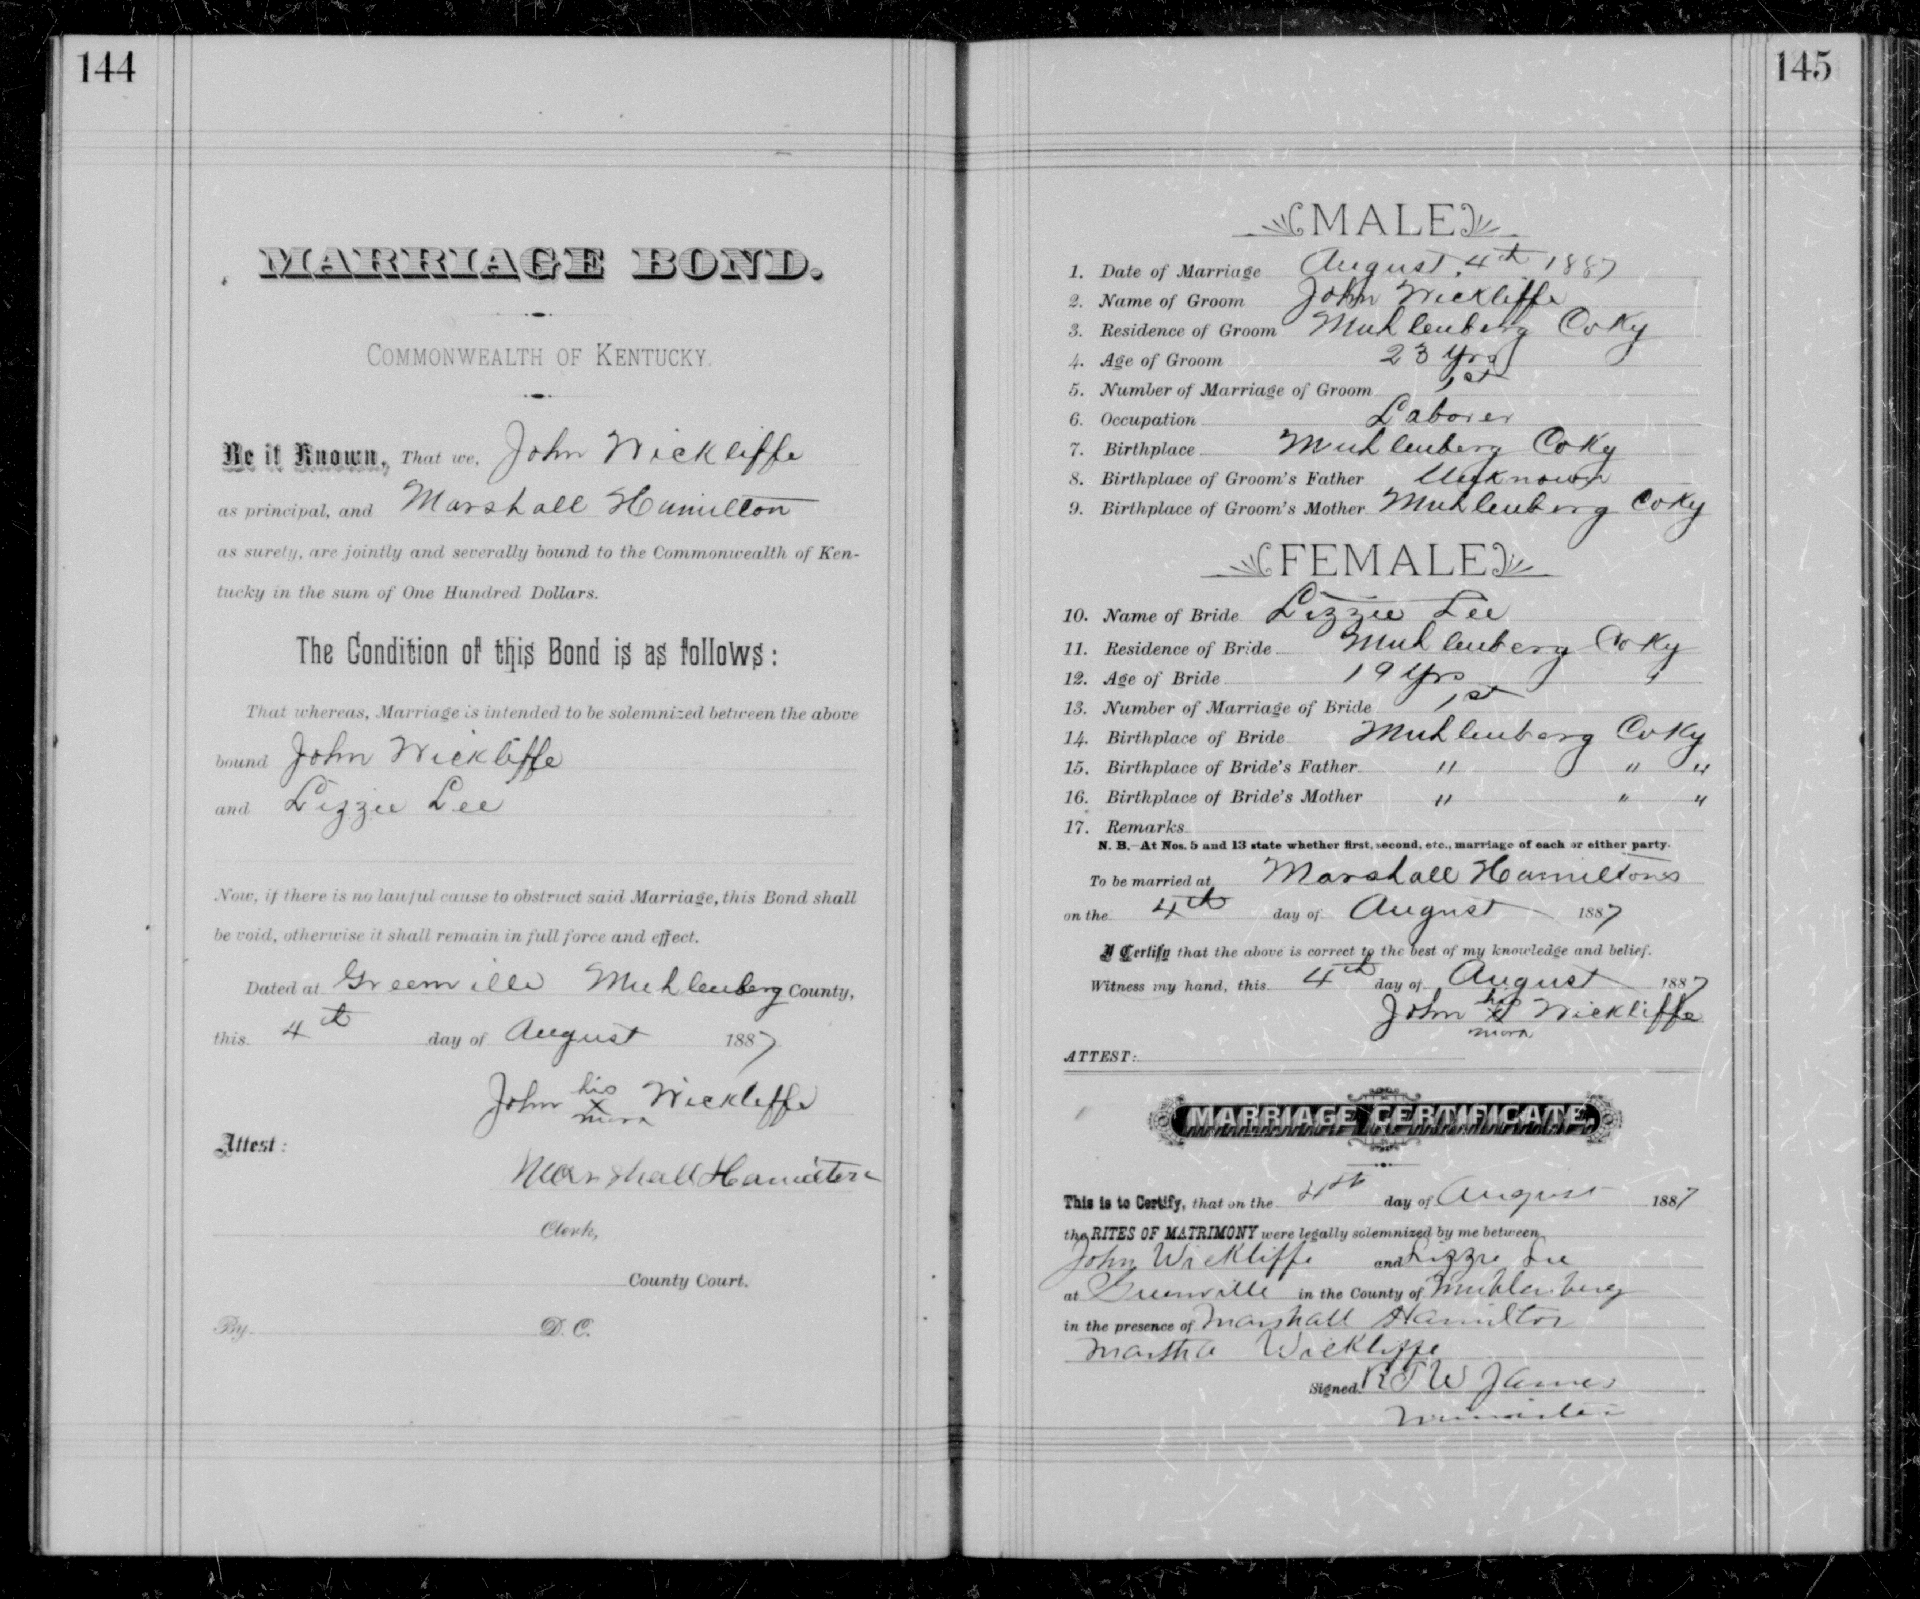 144
MARRIAGE BOND.
COMMONWEALTH OF KENTUCKY.
Be it Known, That we, John Wickliffe
as principal, and Marshall Hamilton
as surety, are jointly and severally bound to the Commonwealth of Ken-
tucky in the sum of One Hundred Dollars.
The Condition of this Bond is as follows:
That whereas, Marriage is intended to be solemnized between the above
bound John Wickliffe
and Lizzie Lee
Now, if there is no lawful cause to obstruct said Marriage, this Bond shall
be void, otherwise it shall remain in full force and effect.
Dated at Greenville Muhlenberg County,
this 4th day of August 1887
John his x mark Wickliffe
Attest:
Marshall Hamilton
Clerk,
County Court.
By D. C.
145
MALE
1. Date of Marriage August 4th 1887
2. Name of Groom John Wickliffe
3. Residence of Groom Muhlenberg Co Ky
4. Age of Groom 23 yrs
5. Number of Marriage of Groom 1st
6. Occupation Laborer
7. Birthplace Muhlenberg Co Ky
8. Birthplace of Groom's Father Unknown
9. Birthplace of Groom's Mother Muhlenberg Co Ky
FEMALE
10. Name of Bride Lizzie Lee
11. Residence of Bride Muhlenberg Co Ky
12. Age of Bride 19 yrs "
13. Number of Marriage of Bride 1st
14. Birthplace of Bride Muhlenberg Co Ky
15. Birthplace of Bride's Father " " "
16. Birthplace of Bride's Mother " " "
17. Remarks
N. B.—At Nos. 5 and 13 state whether first, second, etc., marriage of each or either party.
To be married at Marshall Hamiltons
on the 4th day of August 1887
I Certify that the above is correct to the best of my knowledge and belief.
Witness my hand, this 4th day of August 1887
John his x mark Wickliffe
ATTEST:
MARRIAGE CERTIFICATE.
This is to Certify, that on the 4th day of August 1887
the RITES OF MATRIMONY were legally solemnized by me between
John Wickliffe and Lizzie Lee
at Greenville in the County of Muhlenberg
in the presence of Marshall Hamilton
Martha Wickliffe
Signed R T W James
Minister